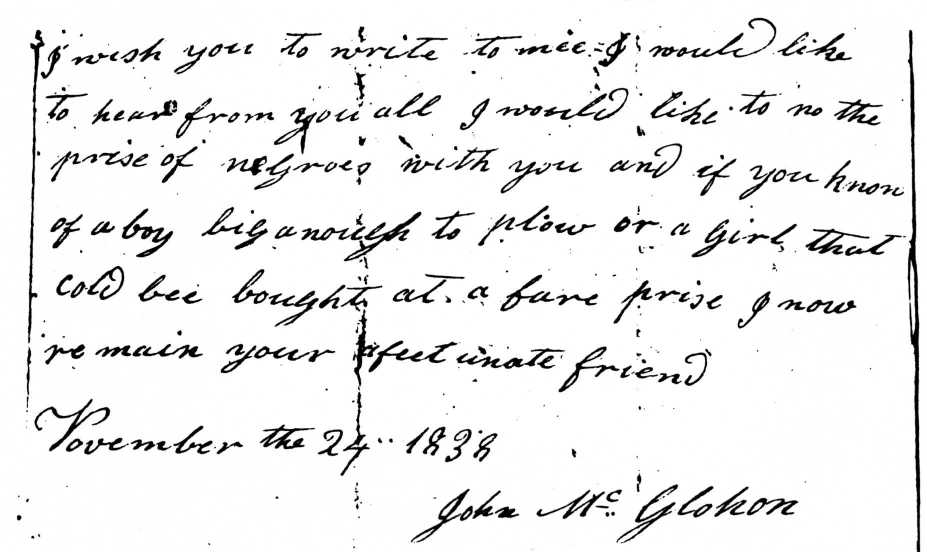 I wish you to write to mee I would like
to hear from you all I would like to no the
prise of negroes with you and if you know
of a boy big anough to plow or a girl that
cold bee bought at a fare prise I now
remain your afectunate friend
November the 24 1838
John Mc Glohon